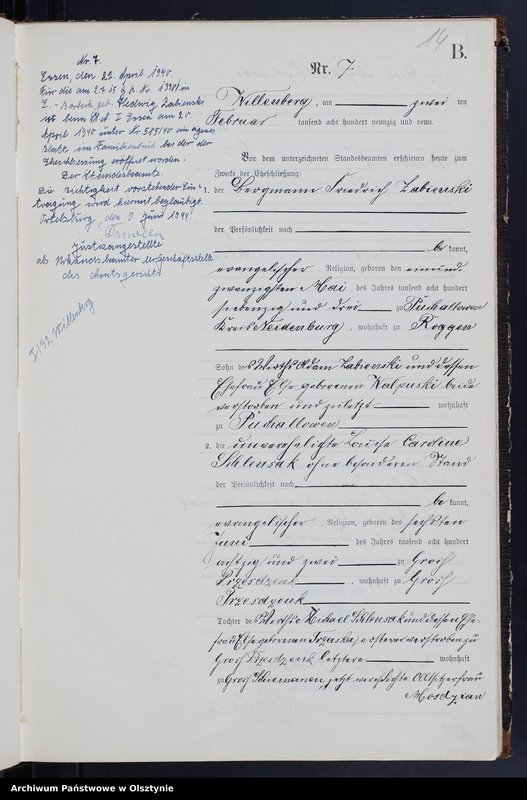 14
B.
Nr. 7.
Nr. 7.
Essen, den 22. April 1940.
Für die am
E. - Borbeck geb. Hedwig Zabienski
ist beim St. A. I Essen am 20.
April 1940 unter Nr. 585/40 ein eigenes
Blatt im Familienbuch bei der
Eheschliessung eröffnet worden.
Der Standesbeamte
Die Richtigkeit vorstehender Ein-
tragung wird hiermit beglaubigt.
Ortelsburg, den 9. Juni 194
Justizangestellte
als Urkundsbeamter der Geschäftsstelle
des Amtsgerichts
I/32 Willenberg
Willenberg, am zwei ten
Februar tausend acht hundert neunzig und neun.
Vor dem unterzeichneten Standesbeamten erschienen heute zum
Zwecke der Eheschließung:
1. der Bergmann Friedrich Zabienski
der Persönlichkeit nach
be kannt,
evangelischer Religion, geboren den einund-
zwanzigsten Mai des Jahres tausend acht hundert
siebenzig und drei zu Puchallowen
Kreis Neidenburg, wohnhaft zu Roggen
Sohn des Wirths Adam Zabienski und dessen
Ehefrau Else geborenen beide
verstorben und zuletzt wohnhaft
zu Puchallowen
2. die unverehelichte Louise Caroline
Schleusak ohne besonderen Stand
der Persönlichkeit nach
be kannt,
evangelischer Religion, geboren den sechsten
Juni des Jahres tausend acht hundert
achtzig und zwei zu Groß
Przesdzenk, wohnhaft zu Groß
Przesdzenk
Tochter des Wirths Michael Schleusak und dessen Ehe-
frau Else geborenen ersterer verstorben zu
Groß Przesdzenk letztere wohnhaft
zu Groß Schiemanen, jetzt verehelichte Altsitzerfrau
Mosdzian
Archiwum Państwowe w Olsztynie